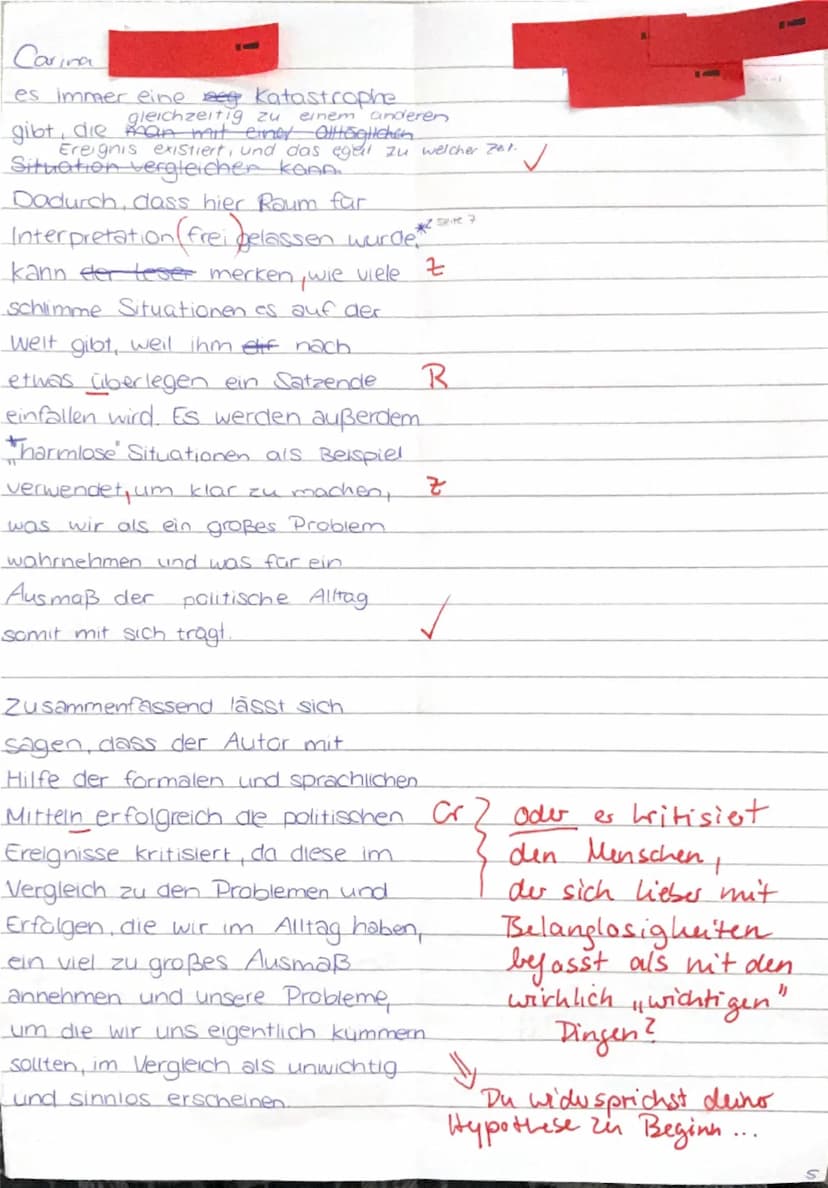 Carina
es immer eine aeg Katastrophe
gleichzeitig zu einem anderen
gibt, die man mit einer Alltäglichen
Ereignis existiert, und das egal zu welcher Zeit.
Situation vergleichen kann. ✓
Dadurch, dass hier Raum für
Interpretation (frei) gelassen wurde,* Seite 7
kann der Leser merken, wie viele Z
schlimme Situationen es auf der
Welt gibt, weil ihm nach
etwas überlegen ein Satzende R
einfallen wird. Es werden außerdem
*„harmlose" Situationen als Beispiel
verwendet, um klar zu machen, Z
was wir als ein großes Problem
wahrnehmen und was für ein
Ausmaß der politische Alltag
somit mit sich trägt. ✓
Zusammenfassend lässt sich
sagen, dass der Autor mit
Hilfe der formalen und sprachlichen
Mitteln erfolgreich die politischen Gr
Ereignisse kritisiert, da diese im
Vergleich zu den Problemen und
Erfolgen, die wir im Alltag haben,
ein viel zu großes Ausmaß
annehmen und unsere Probleme,
um die wir uns eigentlich kümmern
sollten, im Vergleich als unwichtig
und sinnlos erscheinen.
oder er kritisiert
den Menschen,
der sich lieber mit
Belanglosigkeiten
befasst als mit den
wirklich „wichtigen"
Dingen?
Du widersprichst deiner
Hypothese zu Beginn ...
5